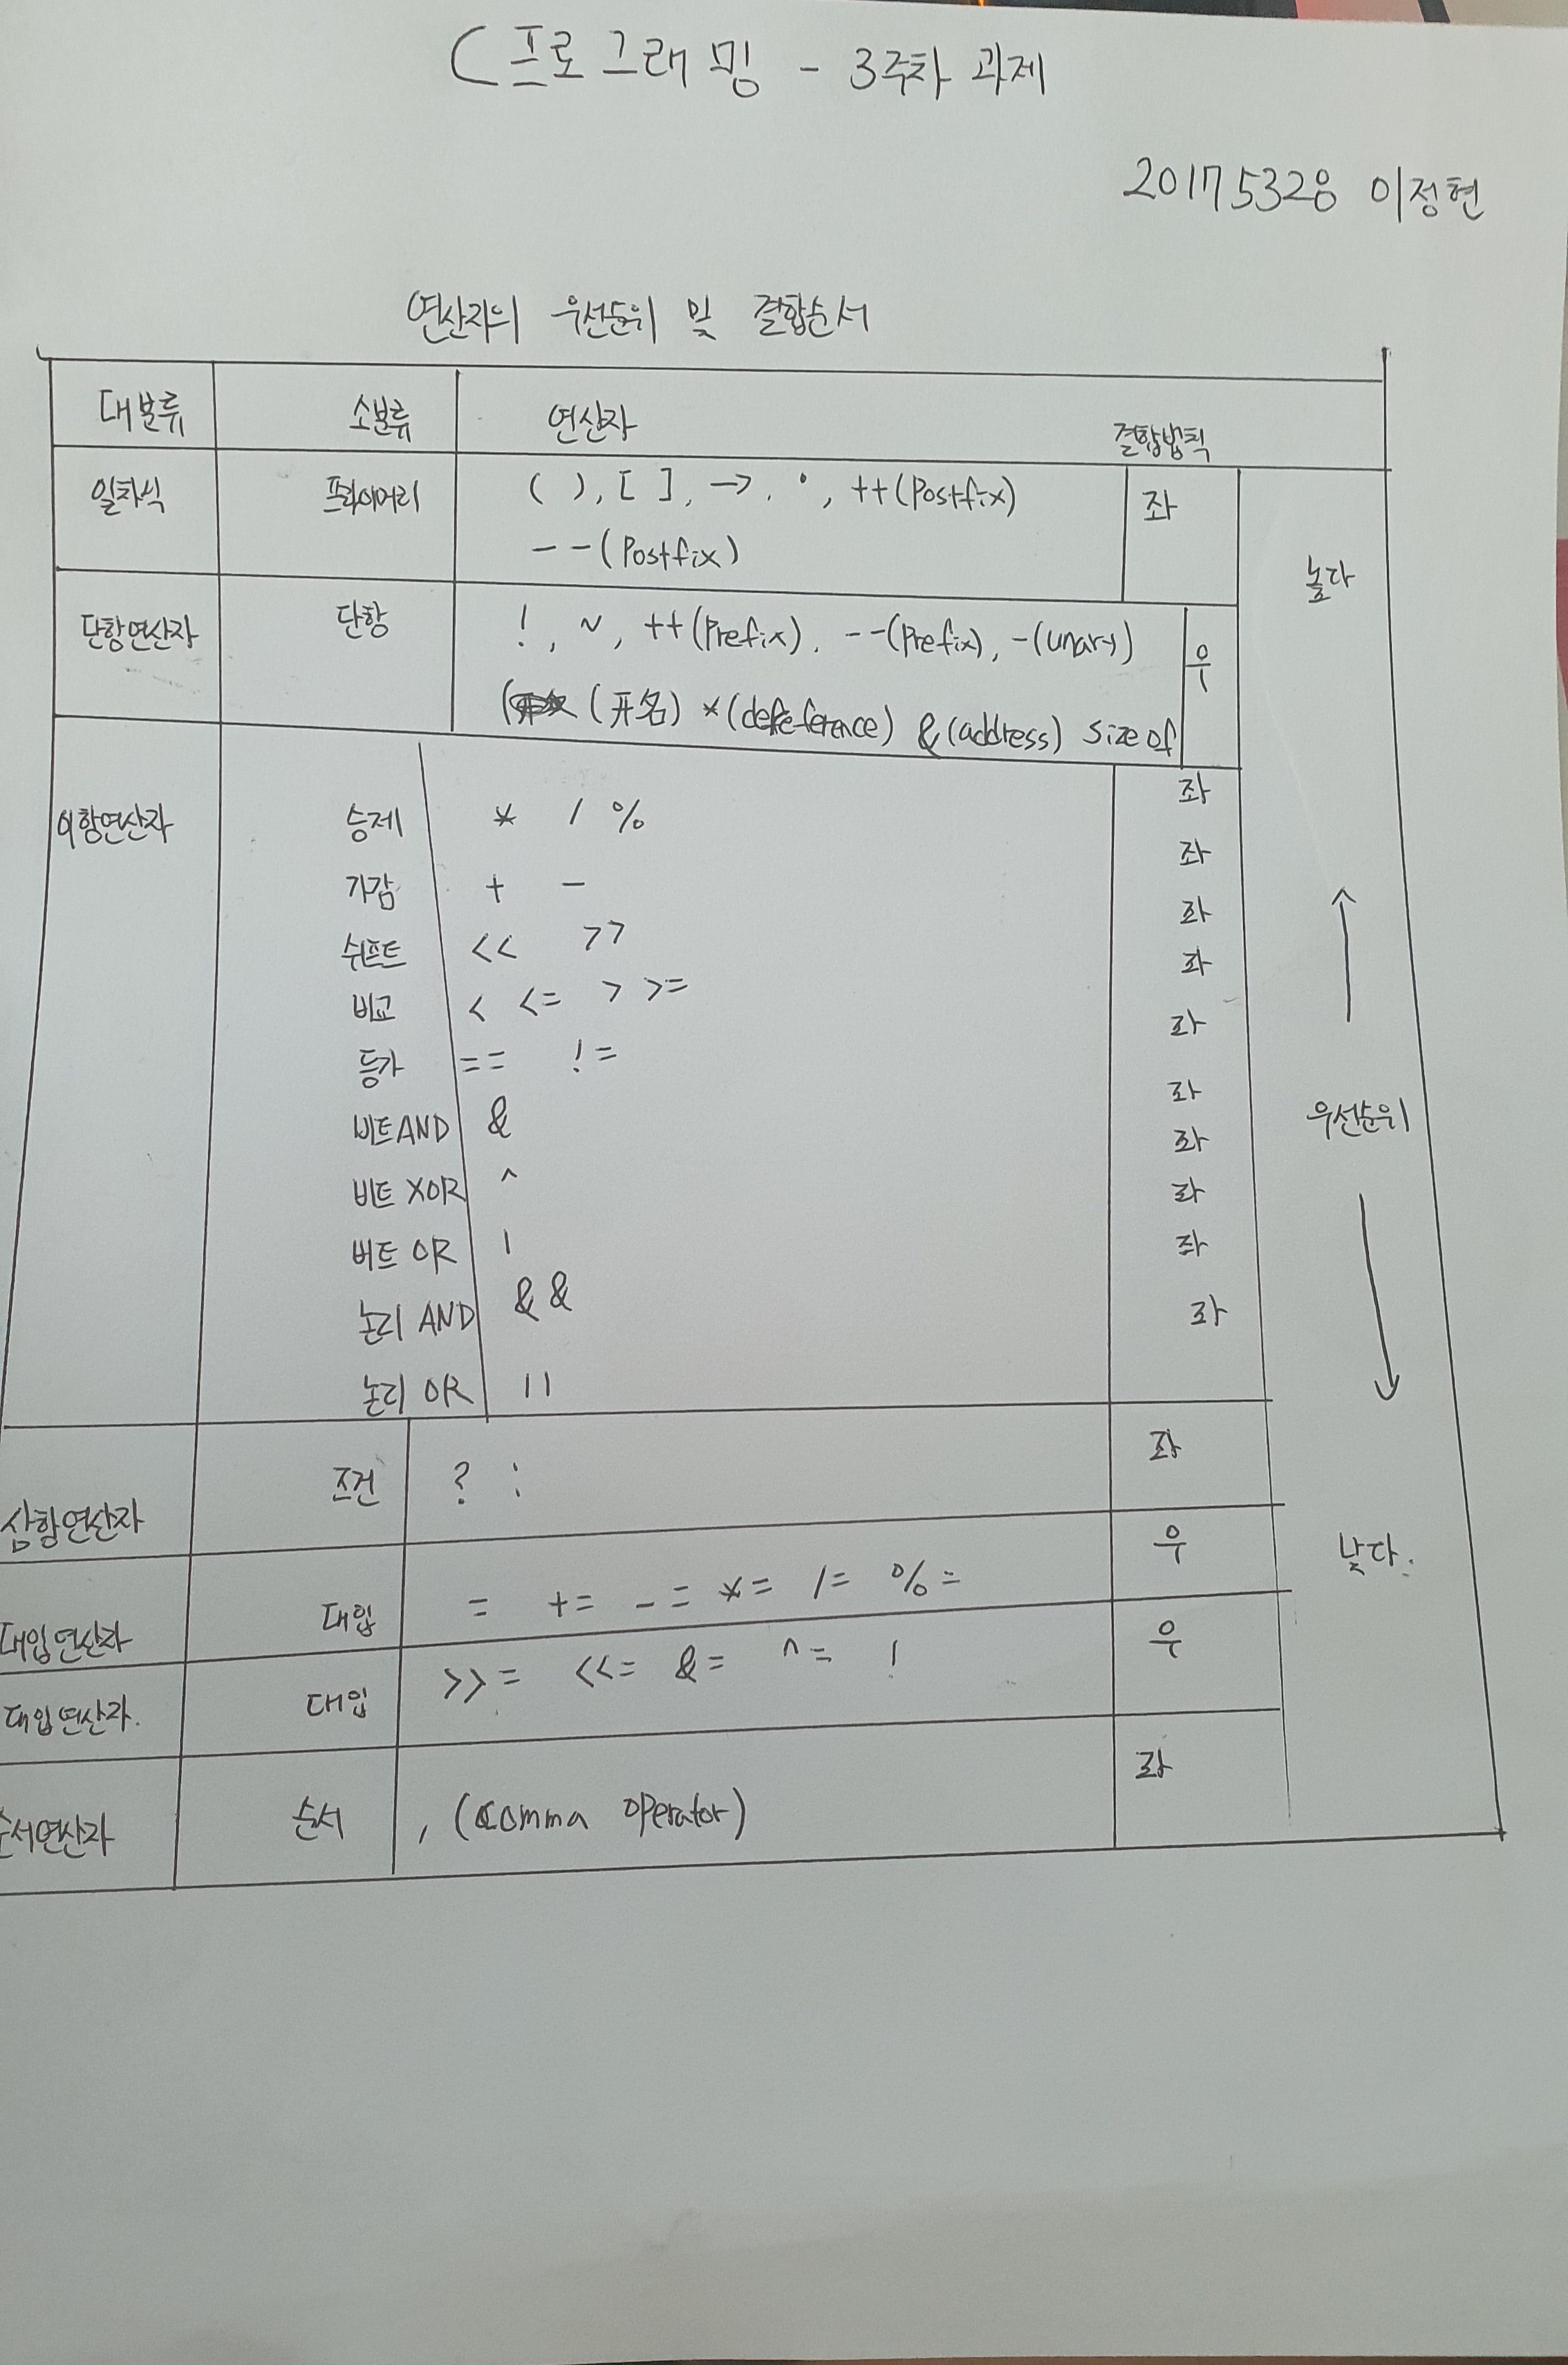 C프로그래밍 - 3주차 과제
20175328 이정현
연산자의 우선순위 및 결합순서
대분류 소분류 연산자 결합법칙
일차식 프라이머리 ( ), [ ], →, ·, ++(Postfix) 좌
--(Postfix)
높다
단항연산자 단항 !, ~, ++(Prefix), --(Prefix), -(unary) 우
(开名) *(dereference) &(address) sizeof
이항연산자 승제 * / % 좌
가감 + - 좌
쉬프트 << >> 좌
비교 < <= > >= 좌
등가 == != 좌
비트AND & 좌
우선순위
비트 XOR ^ 좌
비트 OR | 좌
논리 AND && 좌
논리 OR || 좌
삼항연산자 조건 ? : 좌
대입연산자 대입 = += -= *= /= %= 우
낮다.
대입연산자. 대입 >>= <<= &= ^= ! 우
순서연산자 순서 , (comma operator) 좌